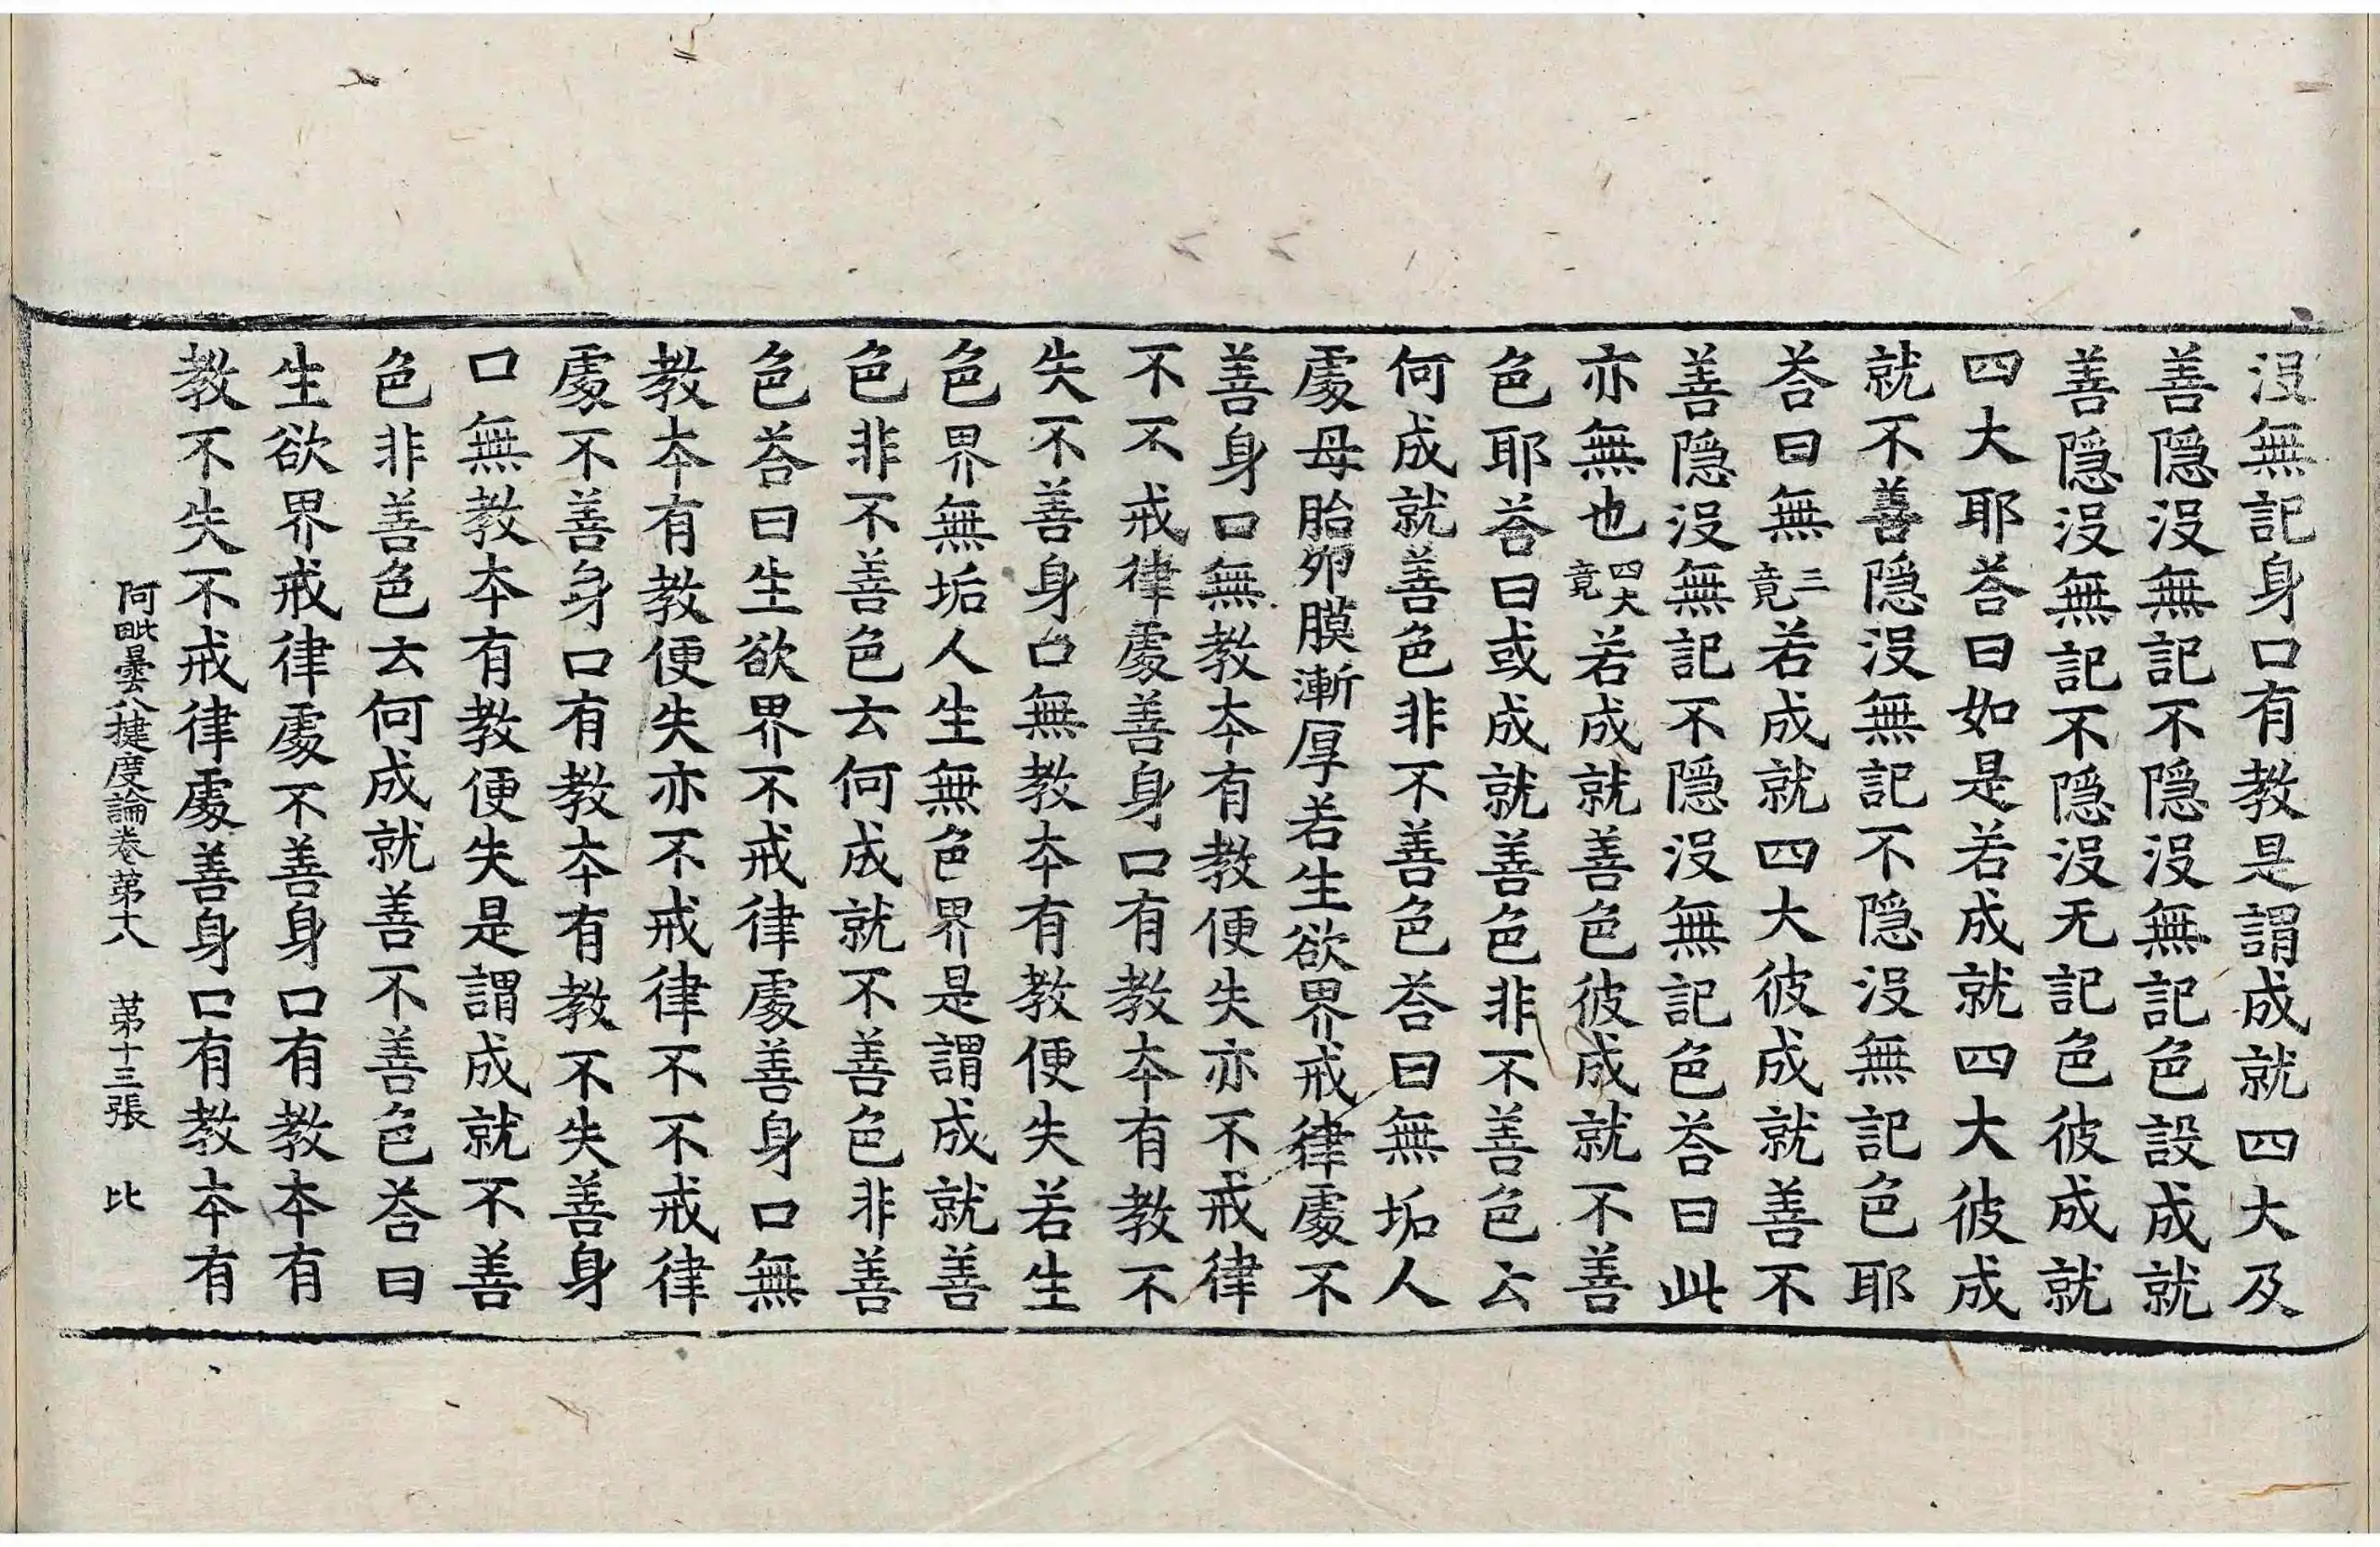 沒無記身口有教是謂成就四大及
善隱沒無記不隱沒無記色設成就
善隱沒無記不隱沒无記色彼成就
四大耶荅曰如是若成就四大彼成
就不善隱沒無記不隱沒無記色耶
荅曰無三竟若成就四大彼成就善不
善隱沒無記不隱沒無記色荅曰此
亦無也四大竟若成就善色彼成就不善
色耶荅曰或成就善色非不善色云
何成就善色非不善色荅曰無垢人
處母胎卵膜漸厚若生欲界戒律處不
善身口無教本有教便失亦不戒律
不不戒律處善身口有教本有教不
失不善身口無教本有教便失若生
色界無垢人生無色界是謂成就善
色非不善色云何成就不善色非善
色荅曰生欲界不戒律處善身口無
教本有教便失亦不戒律不不戒律
處不善身口有教本有教不失善身
口無教本有教便失是謂成就不善
色非善色云何成就善不善色荅曰
生欲界戒律處不善身口有教本有
教不失不戒律處善身口有教本有
阿毗曇八揵度論卷第十八 第十三張 比